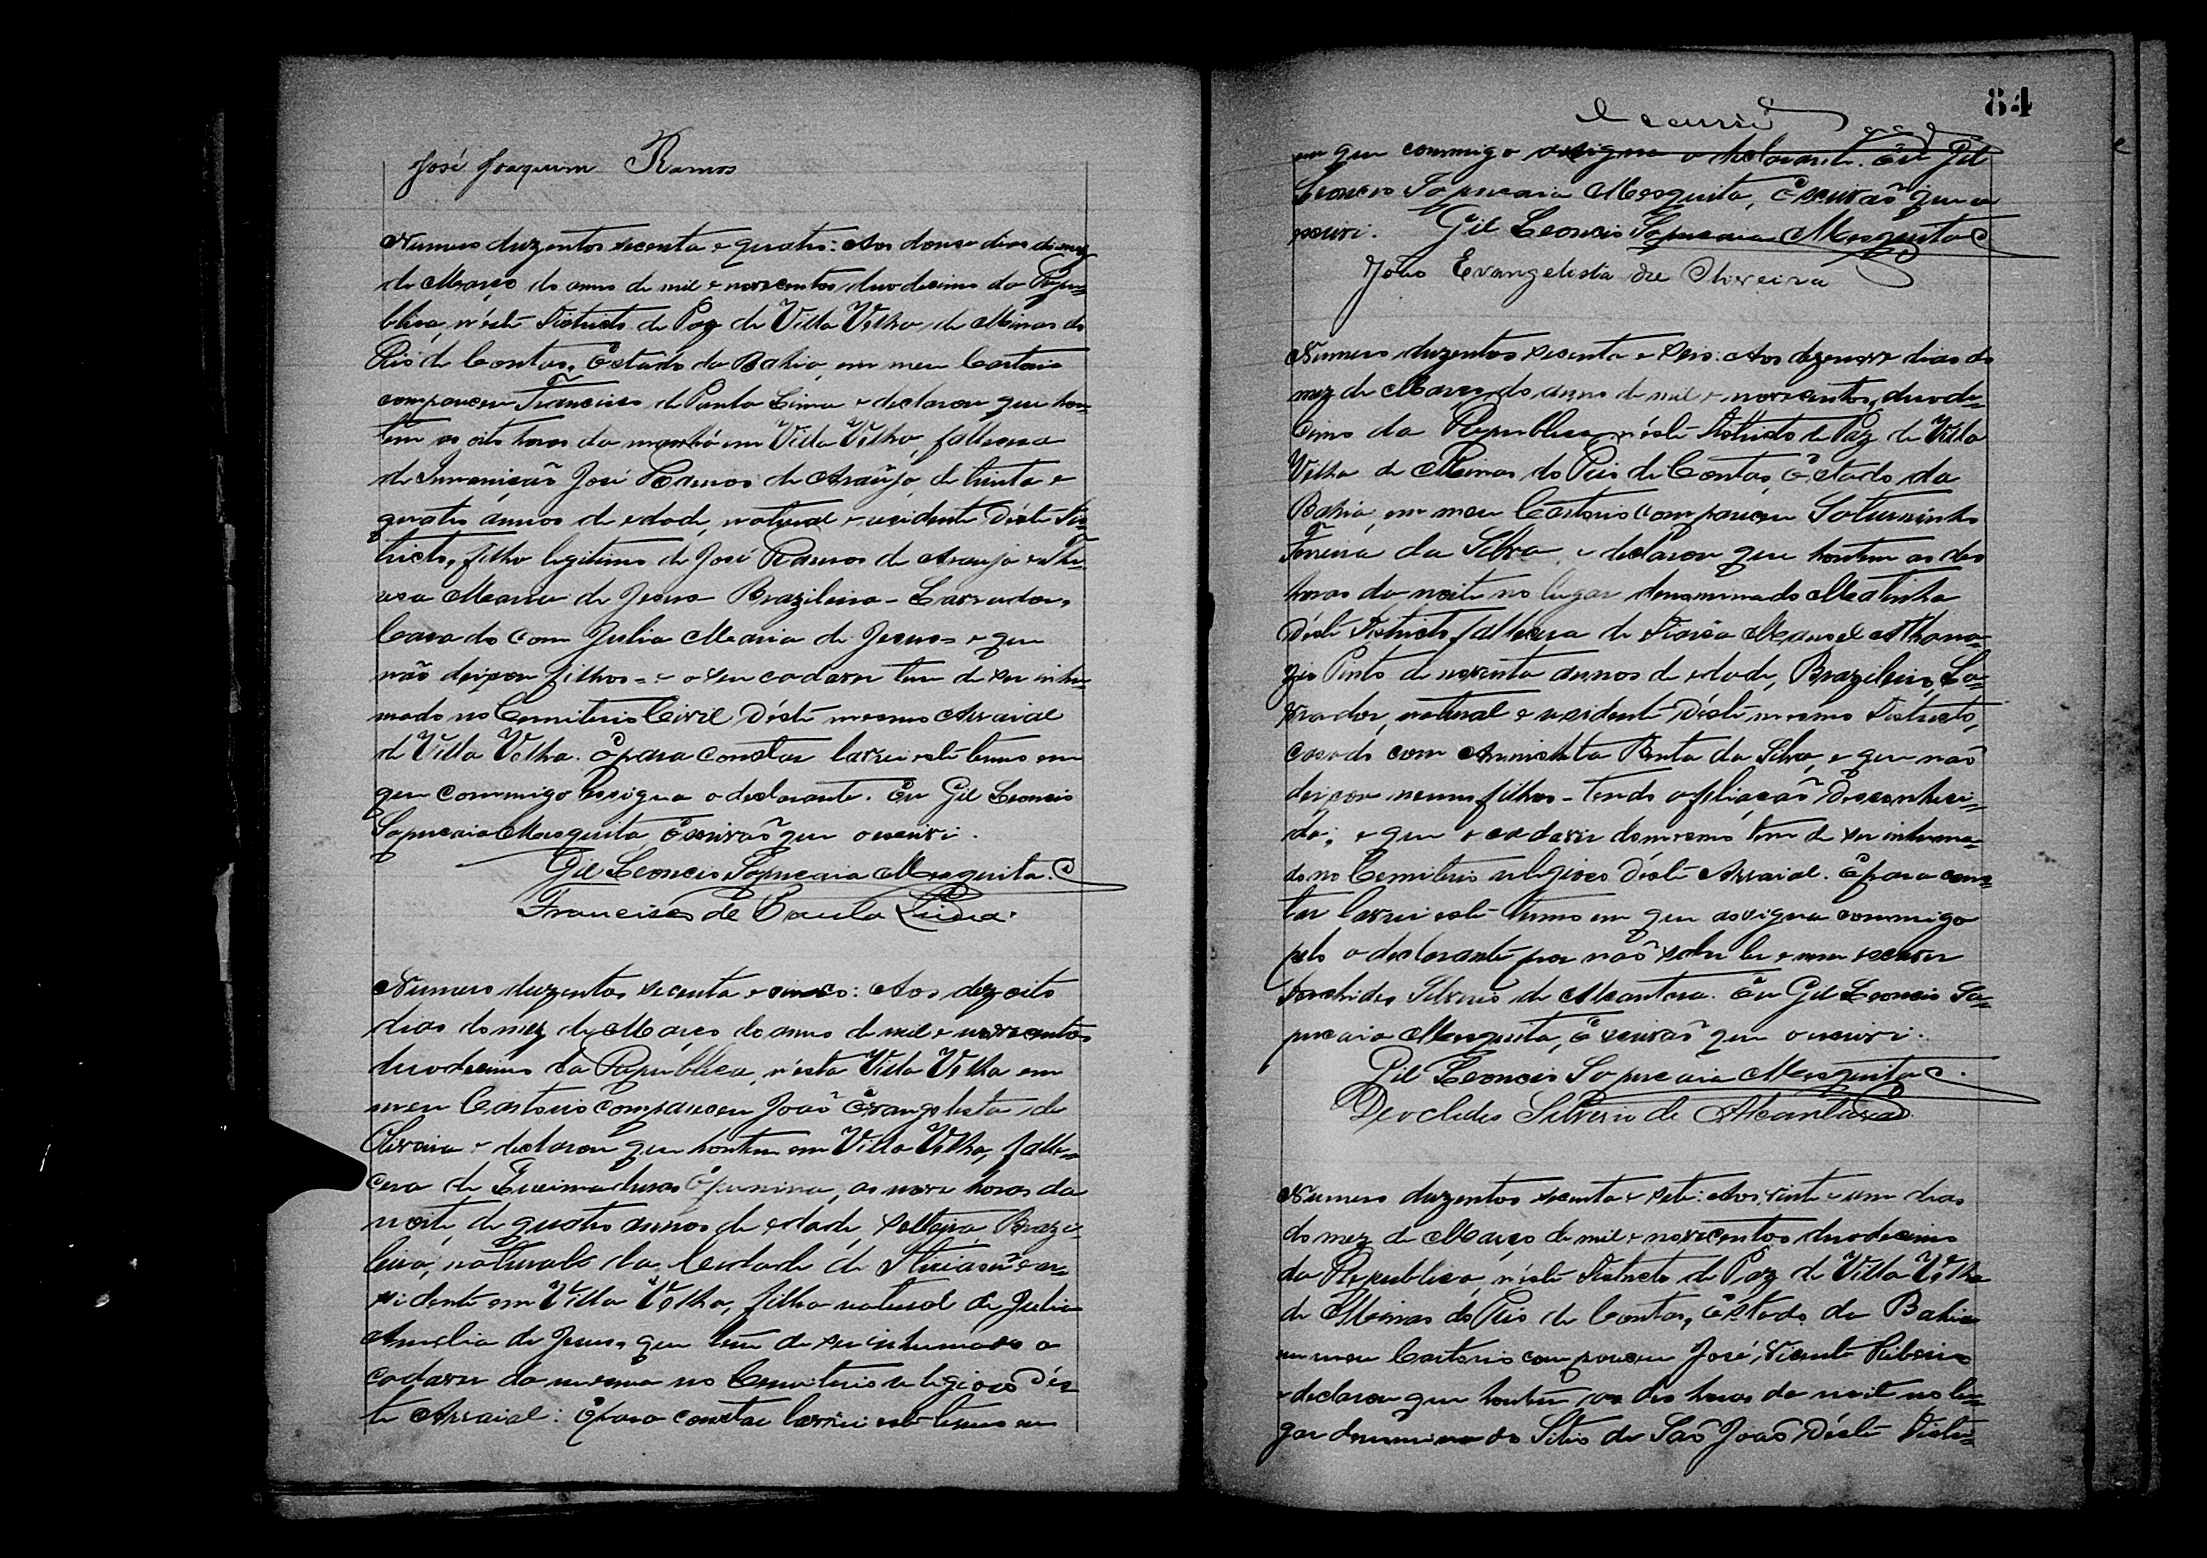 José Joaquim Ramos
Numero duzentos secenta e quatro: Aos douse dias do mez
de Março do anno de mil e novecentos, duodecimo da Repu=
blica, n'éste Districto de Paz de Villa Velha de Minas do
Rio de Contas, Estado da Bahia, em meu Cartorio
compareceu Francisco de Paula Lima e declarou que hon=
tem as oito horas da manhã em Villa Velha, fallecera
de José Ramos de Araujo, de trinta e
quatro annos de edade, natural e residente déste Dis=
tricto, filho legitimo de José Ramos de Araujo e The=
resa Maria de Jesus Brazileiro - Lavrador,
Casado com Julia Maria de Jesus = e que
não deixou filhos = e o seu cadaver tem de ser inhu=
mado no Cemiterio Civil déste mesmo Arraial
de Villa Velha. E para constar lavrei este termo em
que commigo assigna o declarante. Eu Gil Leoncio
Sapucaia Mesquita, Escrivão que o escrivi.
Gil Leoncio Sapucaia Mesquita.
Francisco de Paula Lima.
Numero duzentos secenta e cinco: Aos dezoito
dias do mez de Março do anno de mil e novecentos
duodecimo da Republica, n'ésta Villa Velha em
meu Cartorio compareceu João Evangelista de
Oliveira e declarou que hontem em Villa Velha, falle=
cera de Queimaduras Epunina, as nove horas da
noite, de quatro annos de edade, solteira, Brazi=
leira, natural da Cidade de e re=
sidente em Villa Velha, filha natural de Julia
Amelia de Jesus, que tem de ser inhumado o
cadaver da mesma no Cemiterio religioso dés=
te Arraial: E para constar lavrei este termo em
84
Escrivi
em que commigo assigna o declarante. Eu Gil
Leoncio Sapucaia Mesquita, Escrivão que o
escrivi. Gil Leoncio Sapucaia Mesquita
João Evangelista de Oliveira
Numero duzentos secenta e seis: Aos dezenove dias do
mez de Março do anno de mil e novecentos, duode=
cimo da Republica, n'éste Districto de Paz de Villa
Velha de Minas do Rio de Contas, Estado da
Bahia, em meu Cartorio compareceu Saturninho
Ferreira da Silva, e declarou que hontem as des
horas da noite no lugar denominado Matinha
déste Districto, fallecera de Manoel Athana=
zio Pinto de noventa annos de edade, Brazileiro, La=
vrador, natural e residente déste mesmo Districto,
casado com Bento da Silva, e que não
deixou nenus filhos - tendo a filiação desconheci=
da; e que o cadaver do mesmo tem de ser inhuma=
do no Cemiterio religioso déste Arraial. E para cons=
tar lavrei este termo em que assigna commigo
pelo o declarante por não saber ler e nem escrever
Deoclides Silverio de Alcantara. Eu Gil Leoncio Sa=
pucaia Mesquita, Escrivão que o escrivi.
Gil Leoncio Sapucaia Mesquita.
Deoclides Silverio de Alcantara
Numero duzentos secenta e sete: Aos vinte e um dias
do mez de Março de mil e novecentos duodecimo
da Republica, n'éste Districto de Paz de Villa Velha
de Minas do Rio de Contas, Estado da Bahia
em meu Cartorio compareceu José Vicente Ribeiro
e declarou que hontem, as des horas da noite no lu=
gar denominado Sitio de São João déste Distri=